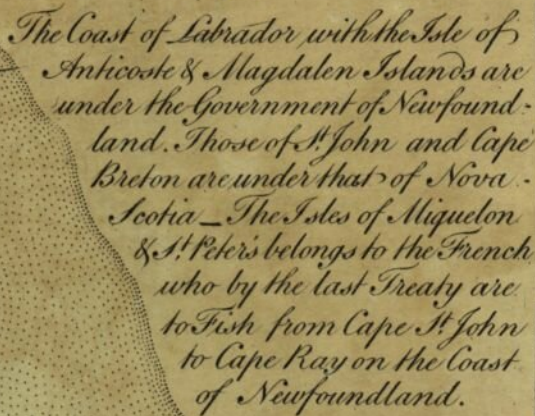 The Coast of Labrador with the Isle of
Anticoste & Magdalen Islands are
under the Government of Newfound-
land. Those of St. John and Cape
Breton are under that of Nova-
Scotia_The Isles of Miquelon
& St. Peter's belongs to the French
who by the last Treaty are
to Fish from Cape St. John
to Cape Ray on the Coast
of Newfoundland.